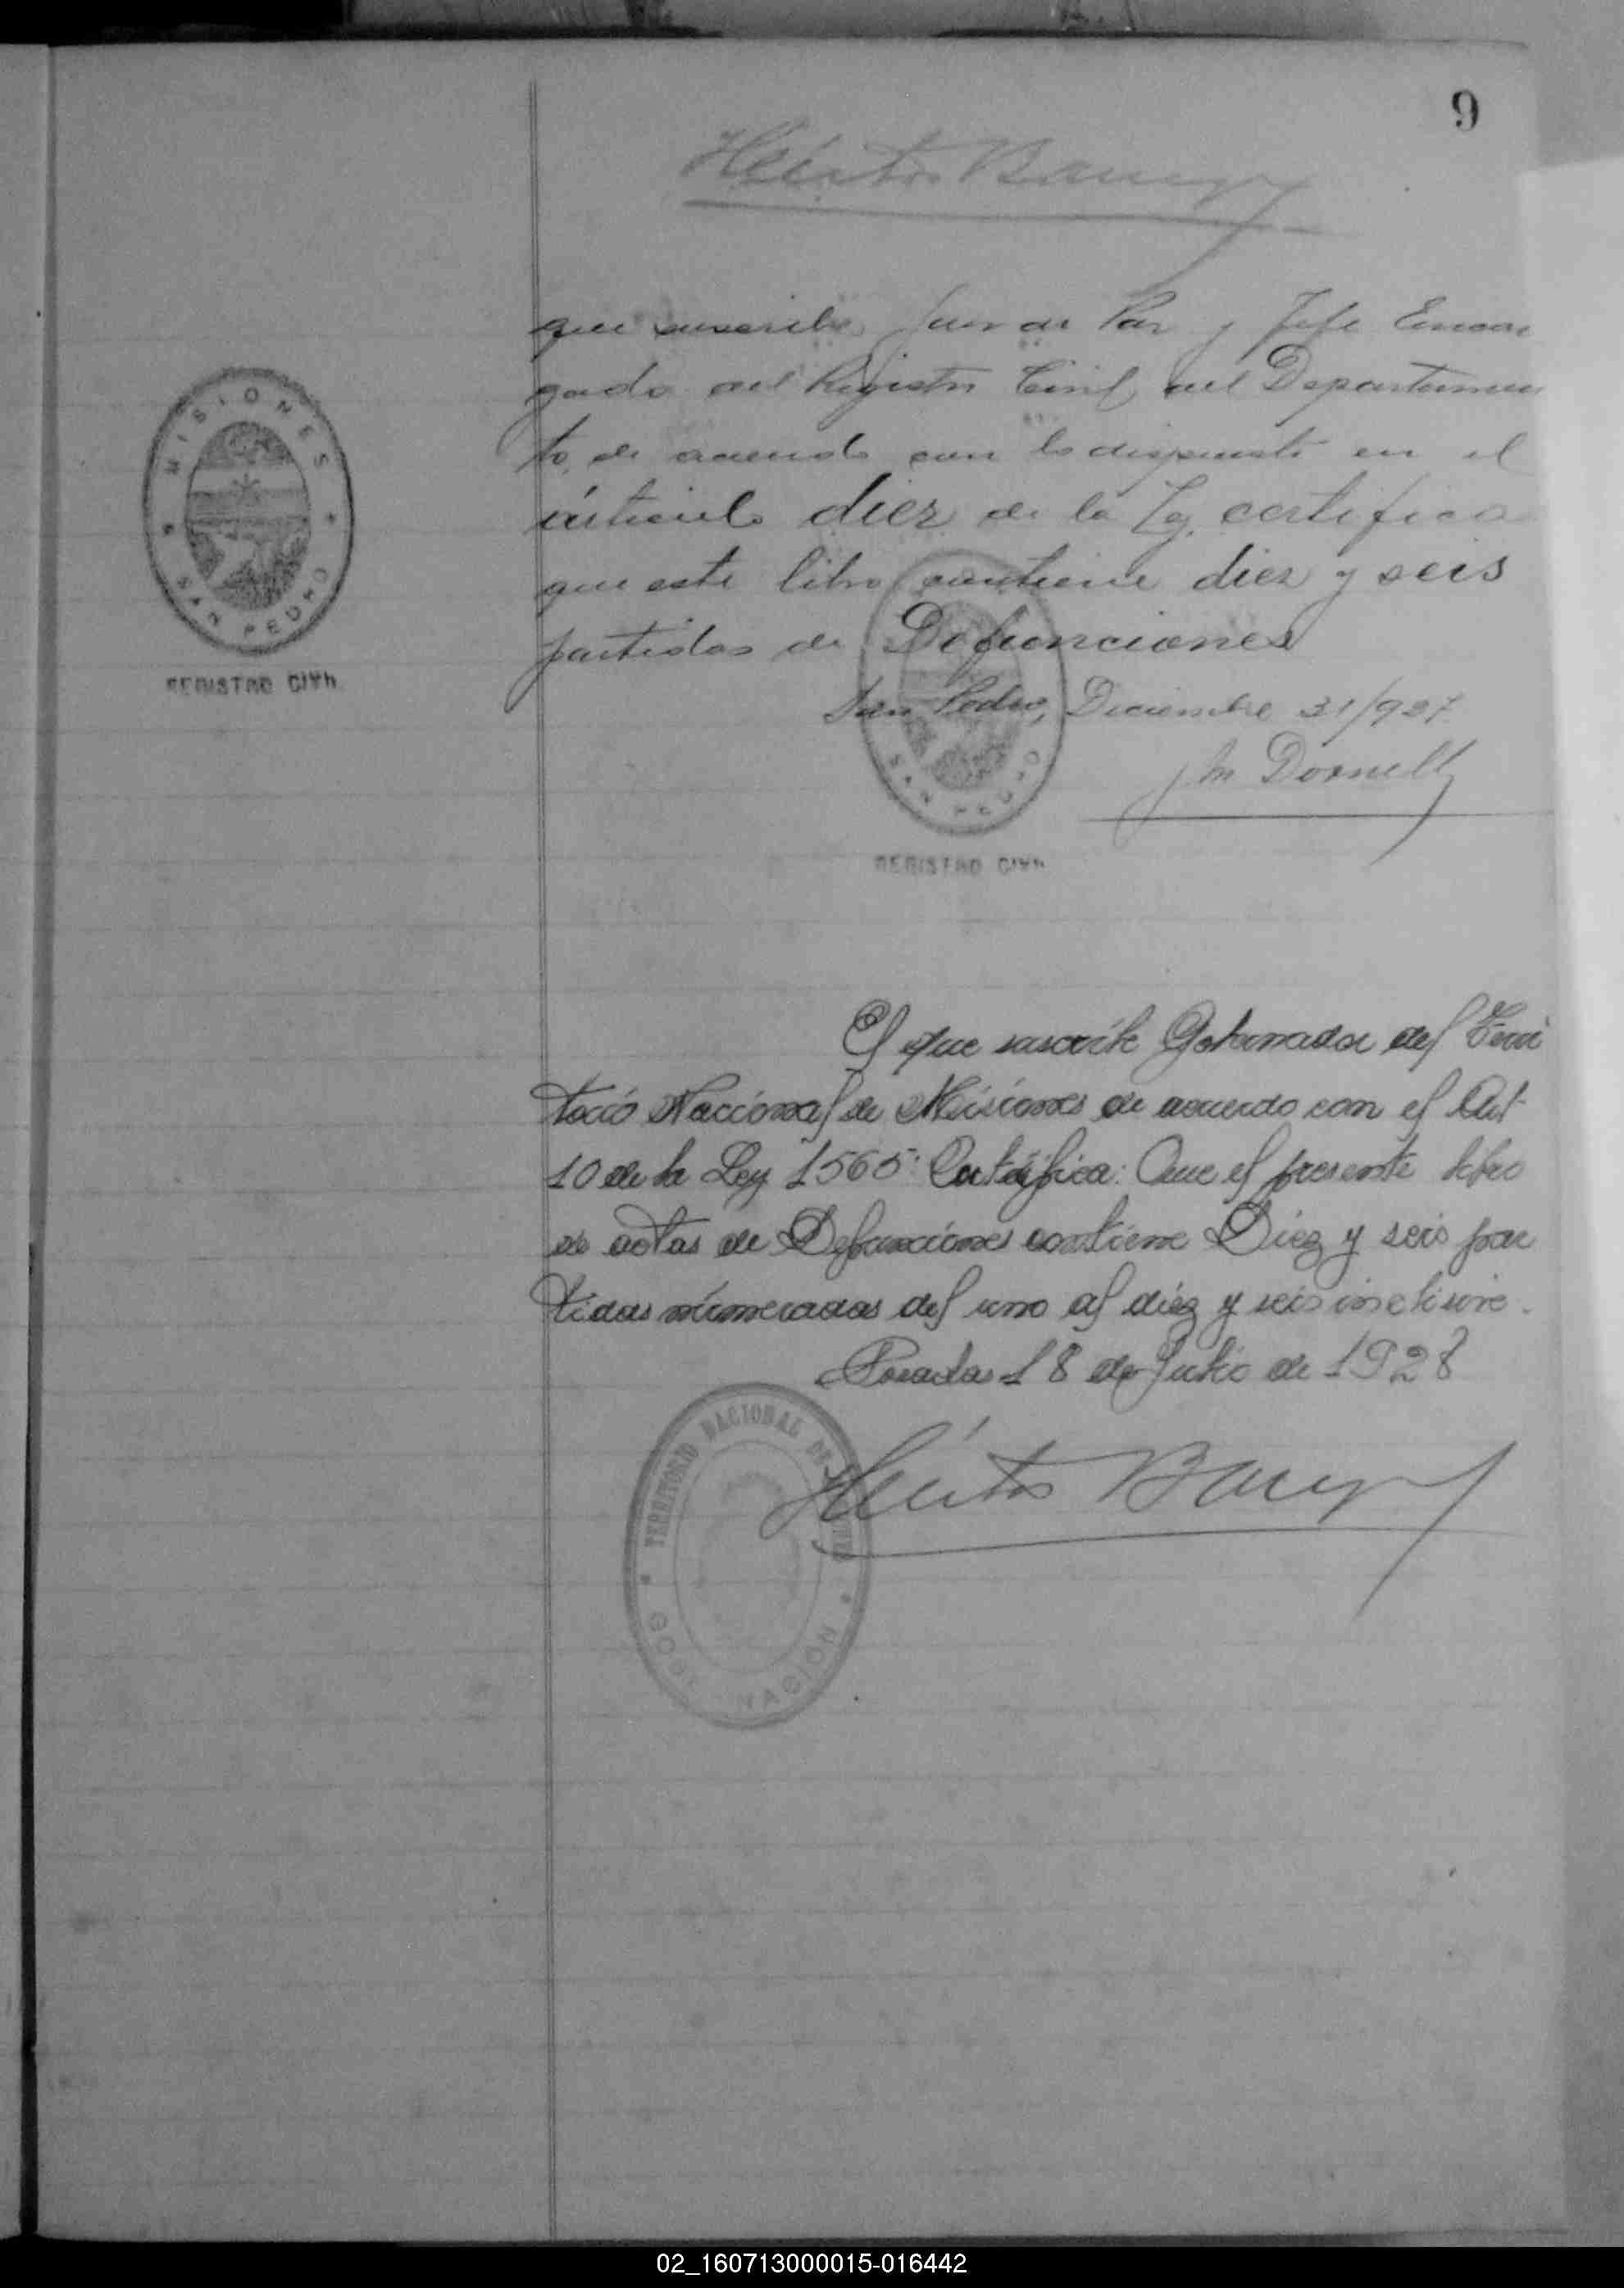 9
Héctor Barreyro
que suscribe, Juez de Paz y Jefe Encar
gado del Registro Civil del Departamen
to, de acuerdo con lo dispuesto en el
artículo diez de la Ley, certifica
que este libro contiene diez y seis
partidas de Defunciones
San Pedro, Diciembre 31/927
MISIONES
SAN PEDRO
REGISTRO CIVIL
SAN PEDRO
REGISTRO CIVIL
El que suscribe Gobernador del Terri
torio Nacional de Misiones de acuerdo con el Art
10 de la Ley 1565: Certifica: Que el presente libro
de actas de Defunciones contiene Diez y seis par
tidas numeradas del uno al diez y seis inclusive.
Posadas 18 de Julio de 1928
Héctor Barreyro
TERRITORIO NACIONAL DE
NACION
02_160713000015-016442